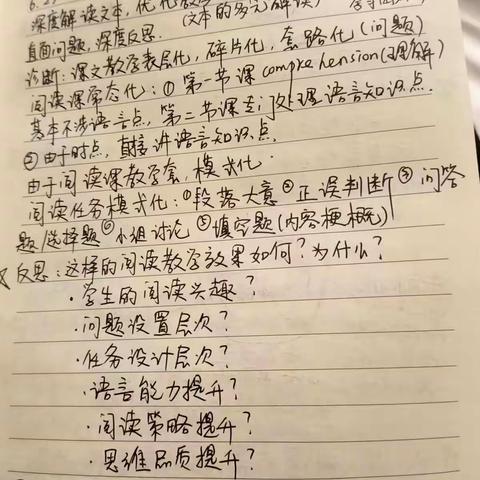 深度解读文本,优化教学
(文本的多元解读)
直面问题,深度反思.
诊断:课文教学表层化,碎片化,套路化(问题)
阅读课常态化:①第一节课comprehension(理解)
基本不涉语言点,第二节课专门处理语言知识点.
②由于时点,直接讲语言知识点.
由于阅读课教学套,模式化.
阅读任务模式化:①段落大意②正误判断③问答
题/选择题④小组讨论⑤填空题(内容梗概)
反思:这样的阅读教学效果如何?为什么?
·学生的阅读兴趣?
·问题设置层次?
·任务设计层次?
·语言能力提升?
·阅读策略提升?
·思维品质提升?